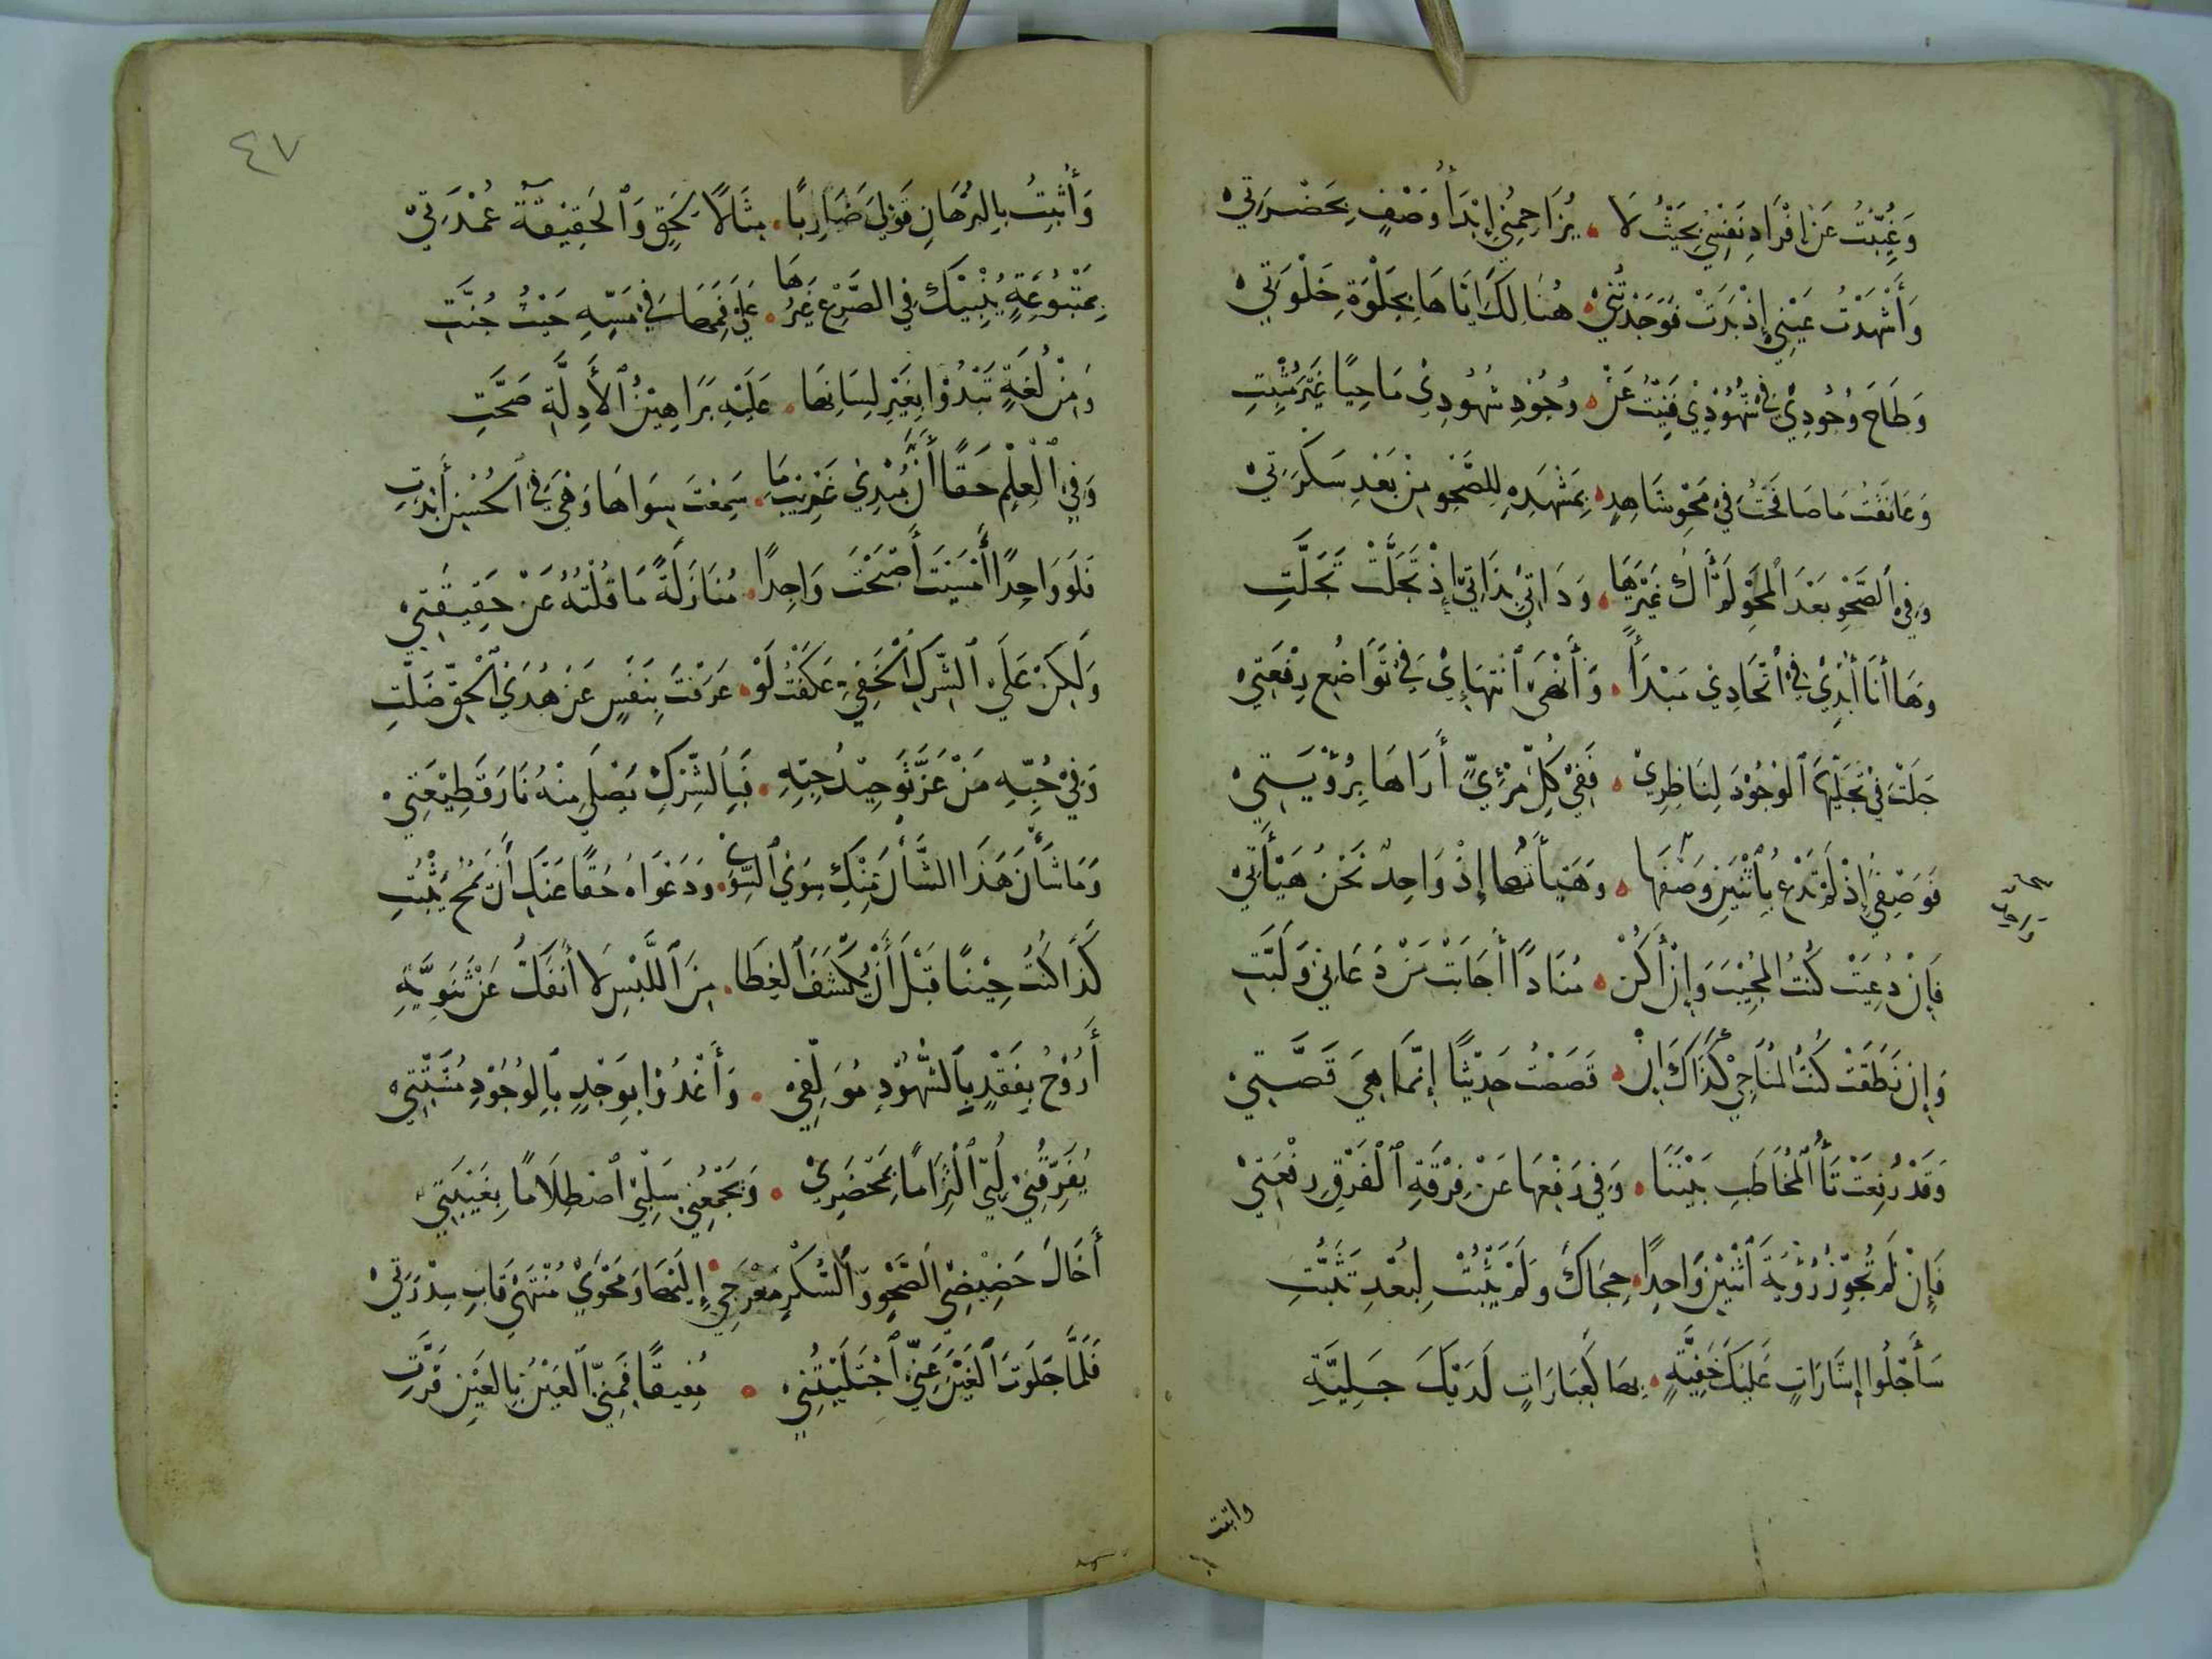 وَغُيِّبْتُ عَنْ إِفْرَادِ نَفْسِي بِحَيْثُ لَا ۰ يُزَاحِمُنِي إِبْدَأُ وَصْفٍ بِحَضْرَتِيْ
وَأُشْهِدْتُ غَيْبِي إِذْ بَدَتْ فَوَجَدْتُنِيْ ۰ هُنَالِكَ إِيَّاهَا بِجَلْوَةِ خَلْوَتِيْ
وَطَاحَ وُجُودِيْ فِي شُهُوْدِيْ فَبِنْتُ عَنْ ۰ وُجُوْدِ شُهُودِيْ مَاحِيًا غَيْرَ مُثْبِتِ
وَعَانَقْتُ مَا شَاهَدْتُ فِي مَحْوِ شَاهِدِهْ ۰ بِمَشْهَدِهِ لِلصَّحْوِ مِنْ بَعْدِ سَكْرَتِيْ
وَفِي ٱلصَّحْوِ بَعْدَ ٱلْمَحْوِ لَمْ أَكُ غَيْرَهَا ۰ وَذَاتِيْ بِذَاتِيْ إِذْ تَحَلَّتْ تَجَلَّتِ
وَهَا أَنَا أُبْدِيْ فِي ٱتِّحَادِيَ مَبْدَأً ۰ وَأُنْهِيْ ٱنْتِهَائِيْ فِي تَوَاضُعِ رِفْعَتِيْ
جَلَتْ فِي تَجَلِّيْهَا ٱلْوُجُوْدَ لِنَاظِرِيْ ۰ فَفِيْ كُلِّ مَرْئِيٍّ أَرَاهَا بِرُؤْيَتِيْ
فَوَصْفِيْ إِذْ لَمْ تُدْعَ بِٱثْنَيْنِ وَصْفُهَا ۰ وَهَيْأَتُهَا إِذْ وَاحِدٌ نَحْنُ هَيْأَتِيْ
فَإِنْ دُعِيَتْ كُنْتُ ٱلْمُجِيْبَ وَإِنْ أَكُنْ ۰ مُنَادًا أَجَابَتْ مَنْ دَعَانِيْ وَلَبَّتِ
وَإِنْ نَطَقَتْ كُنْتُ ٱلْمُنَاجِيْ كَذَاكَ إِنْ ۰ قَصَصْتُ حَدِيْثًا إِنَّمَا هِيَ قَصَّتِيْ
وَقَدْ رُفِعَتْ تَأُ ٱلْمُخَاطَبِ بَيْنَنَا ۰ وَفِي رَفْعِهَا عَنْ فِرْقَةِ ٱلْفَرْقِ رِفْعَتِيْ
فَإِنْ لَمْ تُجَوِّزْ رُؤْيَةَ ٱثْنَيْنِ وَاحِدًا ۰ حِجَاكَ وَلَمْ يَثْبُتْ لِبُعْدِ تَثَبُّتِ
سَأَجْلُوا إِشَارَاتٍ عَلَيْكَ خَفِيَّةٍ ۰ بِهَا كَعِبَارَاتٍ لَدَيْكَ جَلِيَّةِ
واثبت
٤٧
وَأُثْبِتُ بِالبُرْهَانِ قَوْلِيَ ضَارِبًا ۰ مِثَالًا مُحِقٍّ وَٱلْحَقِيْقَةُ عُمْدَتِيْ
بِمَتْبُوْعَةٍ يُنْبِيْكَ فِي الصَّرْعِ غَيْرُهَا ۰ عَلَى فَمِهَا فِي مَسِّهِ حَيْثُ جُنَّتِ
وَمِنْ لُغَةٍ تَبْدُوْا بِغَيْرِ لِسَانِهَا ۰ عَلَيْهِ بَرَاهِيْنُ ٱلْأَدِلَّةِ صَحَّتِ
وَفِي ٱلْعِلْمِ حَقًّا أَنَّ مُبْدِيْ غَرِيْبِ مَا ۰ سَمِعْتَ سِوَاهَا وَهْيَ فِي ٱلْحُسْنِ أَبْدَتِ
فَلَوْ وَاحِدًا أَمْسَيْتَ أَصْبَحْتَ وَاجِدًا ۰ مُنَازَلَةً مَا قُلْتُهُ عَنْ حَقِيْقَتِيْ
وَلَكِنْ عَلَى ٱلشِّرْكِ ٱلْخَفِيِّ عَكَفْتَ لَوْ ۰ عَرَفْتَ بِنَفْسٍ عَنْ هُدَى ٱلْحَقِّ ضَلَّتِ
وَفِيْ حُبِّهِ مَنْ عَزَّ تَوْحِيْدُ حِبِّهِ ۰ فَبِٱلشِّرْكِ يَصْلَى مِنْهُ نَارَ قَطِيْعَتِيْ
وَمَا شَأْنَ هَذَا ٱلشَّأْنَ مِنْكَ سِوَى ٱلسِّوَى ۰ وَدَعْوَاهُ حَقًّا عَنْكَ إِنْ تَمْحُ تُثْبَتِ
كَذَا كُنْتُ حِيْنًا قَبْلَ أَنْ يُكْشَفَ ٱلْغِطَا ۰ مِنَ ٱللَّبْسِ لَا أَنْفَكُّ عَنْ ثَنَوِيَّةِ
أَرُوْحُ بِفَقْدٍ بِٱلشُّهُوْدِ مُوَلِّفِيْ ۰ وَأَغْدُوْا بِوَجْدٍ بِٱلْوُجُوْدِ مُشَتِّتِيْ
يُفَرِّقُنِيْ لُبِّيْ ٱلْتِزَامًا بِمَحْضَرِيْ ۰ وَيَجْمَعُنِيْ سَلْبِيْ ٱصْطِلَامًا بِغَيْبَتِيْ
أَخَالُ حَضِيْضِيْ ٱلصَّحْوَ وَٱلسُّكْرَ مَعْرَجِيْ ۰ إِلَيْهَا وَمَحْوِيْ مُنْتَهَى قَابِ سِدْرَتِيْ
فَلَمَّا جَلَوْتُ ٱلْغَيْنَ عَنِّيْ ٱجْتَلَيْتُنِيْ ۰ مُفِيْقًا فَمِنِّيْ ٱلْعَيْنُ بِالعَيْنِ قَرَّتِ